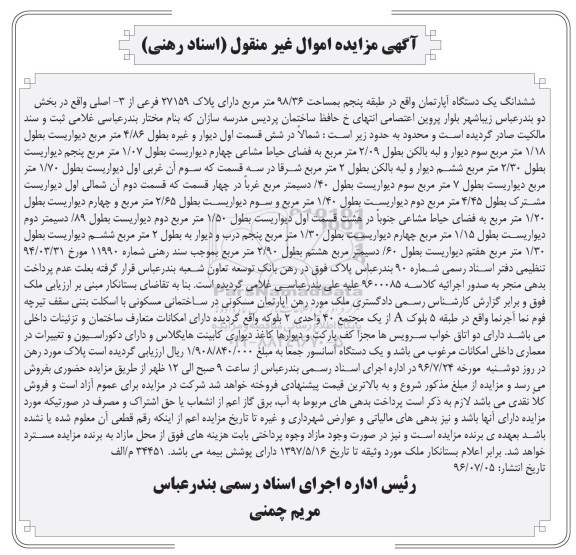 آگهی مزایده اموال غیر منقول (اسناد رهنی)
ششدانگ یک دستگاه آپارتمان واقع در طبقه پنجم بمساحت ۹۸/۳۶ متر مربع دارای پلاک ۲۷۱۵۹ فرعی از ۳- اصلی واقع در بخش
دو بندرعباس زیباشهر بلوار پروین اعتصامی انتهای خ حافظ ساختمان پردیس مدرسه سازان که بنام مختار بندرعباسی غلامی ثبت و سند
مالکیت صادر گردیده است و محدود به حدود زیر است : شمالاً در شش قسمت اول دیوار و غیره بطول ۴/۸۶ متر مربع دیواریست بطول
۱/۱۸ متر مربع سوم دیوار و لبه بالکن بطول ۲/۰۹ متر مربع به فضای حیاط مشاعی چهارم دیواریست بطول ۱/۰۷ متر مربع پنجم دیواریست
بطول ۲/۳۰ متر مربع ششم دیوار و لبه بالکن بطول ۲ متر مربع شرقا در سه قسمت که سوم آن غربی اول دیواریست بطول ۱/۷۰ متر
مربع دیواریست بطول ۷ متر مربع سوم دیواریست بطول ۴۰/ دسیمتر مربع غرباً در چهار قسمت که قسمت دوم آن شمالی اول دیواریست
مشترک بطول ۴/۴۵ متر مربع دوم دیواریست بطول ۱/۴۰ متر مربع و سوم دیواریست بطول ۲/۶۵ متر مربع و چهارم دیواریست بطول
۱/۲۰ متر مربع به فضای حیاط مشاعی جنوباً در هشت قسمت اول دیواریست بطول ۱/۵۰ متر مربع دوم دیواریست بطول ۸۹/ دسیمتر دوم
دیواریست بطول ۱/۱۵ متر مربع چهارم دیواریست بطول ۱/۳۰ متر مربع پنجم درب و دیوار به بطول ۲ متر مربع ششم دیواریست بطول
۱/۳۰ متر مربع هفتم دیواریست بطول ۶۰/ دسیمتر مربع هشتم بطول ۲/۹۰ متر مربع بموجب سند رهنی شماره ۱۱۹۹۰ مورخ ۹۴/۰۳/۳۱
تنظیمی دفتر اسناد رسمی شماره ۹۰ بندرعباس پلاک فوق در رهن بانک توسعه تعاون شعبه بندرعباس قرار گرفته بعلت عدم پرداخت
بدهی منجر به صدور اجرائیه کلاسه ۹۶۰۰۰۸۵ علیه علی بندرعباسی غلامی گردیده است. بنا به تقاضای بستانکار مبنی بر ارزیابی ملک
فوق و برابر گزارش کارشناس رسمی دادگستری ملک مورد رهن آپارتمان مسکونی در ساختمانی مسکونی با اسکلت بتنی سقف تیرچه
فوم نما آجرنما واقع در طبقه ۵ بلوک A از یک مجتمع ۴۰ واحدی ۲ بلوکه واقع گردیده دارای امکانات متعارف ساختمان و تزئینات داخلی
می باشد دارای دو اتاق خواب سرویس ها مجزا کف پارکت و دیوارها کاغذ دیواری کابینت هایگلاس و دارای دکوراسیون و تغییرات در
معماری داخلی امکانات مرغوب می باشد و یک دستگاه آسانسور جمعاً به مبلغ ۱/۹۰۸/۸۴۰/۰۰۰ ریال ارزیابی گردیده است پلاک مورد رهن
در روز دوشنبه مورخه ۹۶/۷/۲۴ در اداره اجرای اسناد رسمی بندرعباس از ساعت ۹ صبح الی ۱۲ ظهر از طریق مزایده حضوری بفروش
می رسد و مزایده از مبلغ مذکور شروع و به بالاترین قیمت پیشنهادی فروخته خواهد شد شرکت در مزایده برای عموم آزاد است و فروش
کلا نقدی می باشد لازم به ذکر است پرداخت بدهی های مربوط به آب، برق گاز اعم از انشعاب یا حق اشتراک و مصرف در صورتیکه مورد
مزایده دارای آنها باشد و نیز بدهی های مالیاتی و عوارض شهرداری و غیره تا تاریخ مزایده اعم از اینکه رقم قطعی آن معلوم شده یا نشده
باشد بعهده ی برنده مزایده است و نیز در صورت وجود مازاد وجوه پرداختی بابت هزینه های فوق از محل مازاد به برنده مزایده مسترد
خواهد شد. برابر اعلام بستانکار ملک مورد وثیقه تا تاریخ ۱۳۹۷/۵/۱۶ دارای پوشش بیمه می باشد. ۳۴۴۵۱ م/الف
تاریخ انتشار: ۹۶/۰۷/۰۵
رئیس اداره اجرای اسناد رسمی بندرعباس
مریم چمنی